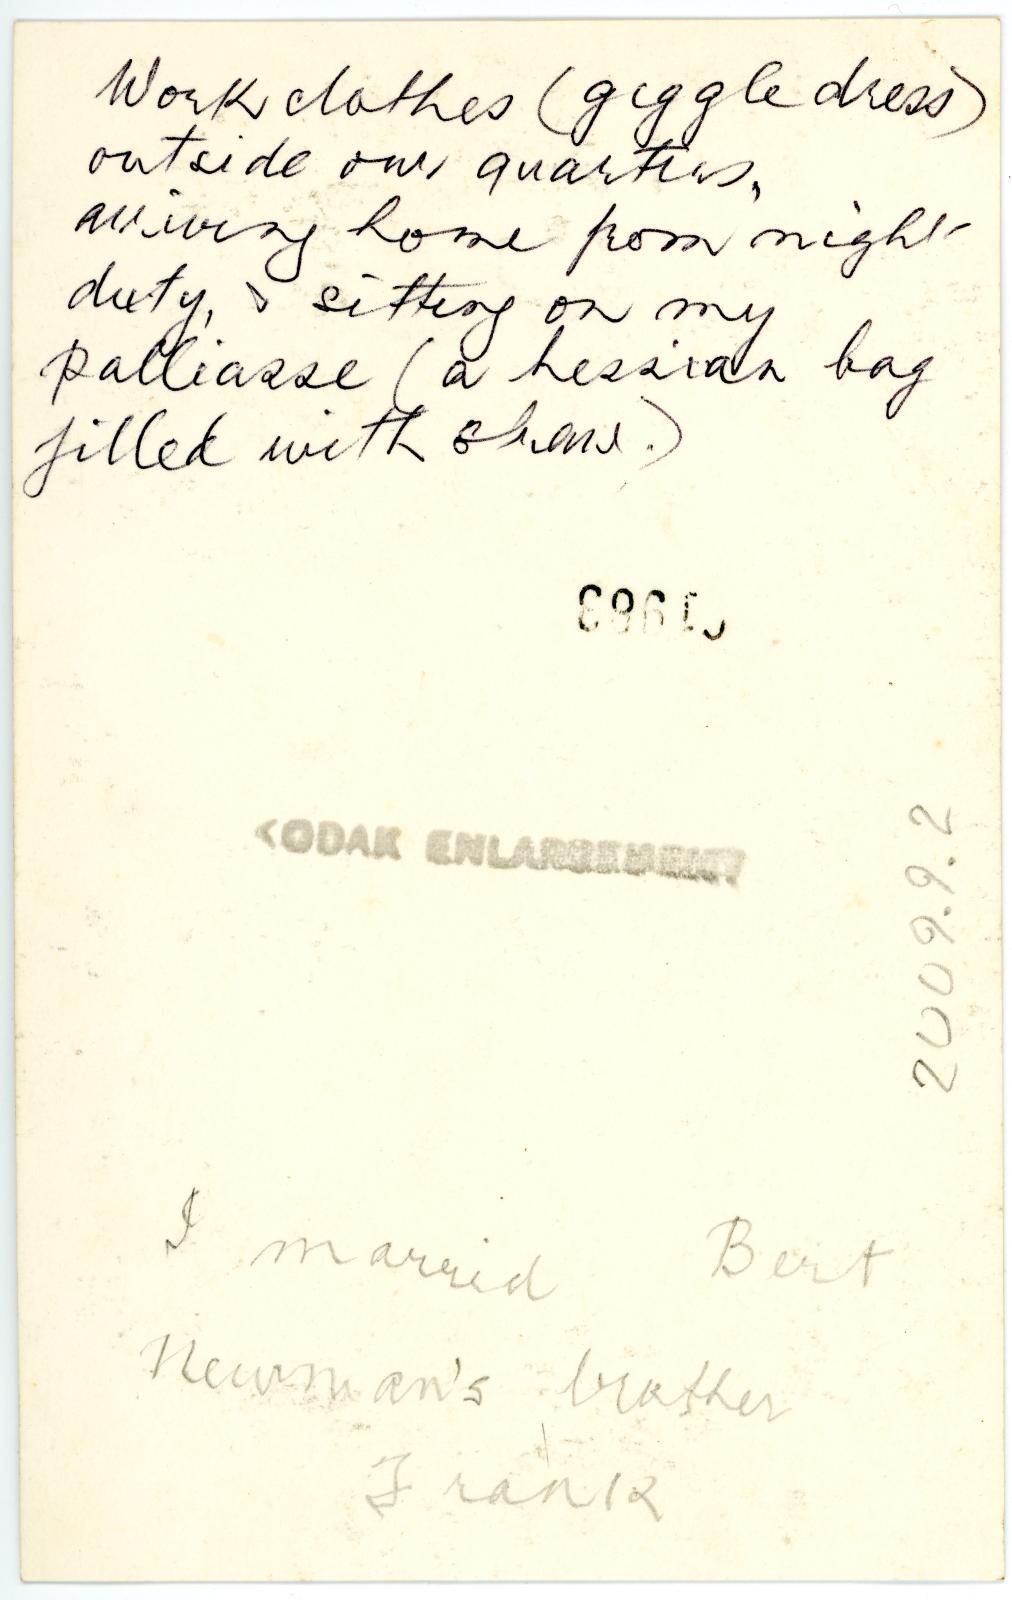 Work clothes (giggle dress)
outside our quarters,
arriving home from night
duty, & sitting on my
palliasse (a hessian bag
filled with straw.)
KODAK ENLARGEMENT
2009.9.2
I marrid Bert
Newman's brother
Frank